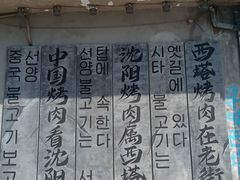 중국 불고기 보고
선양
中国烤肉看沈阳
선양 불고기는
탑에 속한다
沈阳烤肉属西塔
시타 불고기는
옛길에 있다
西塔烤肉在老街